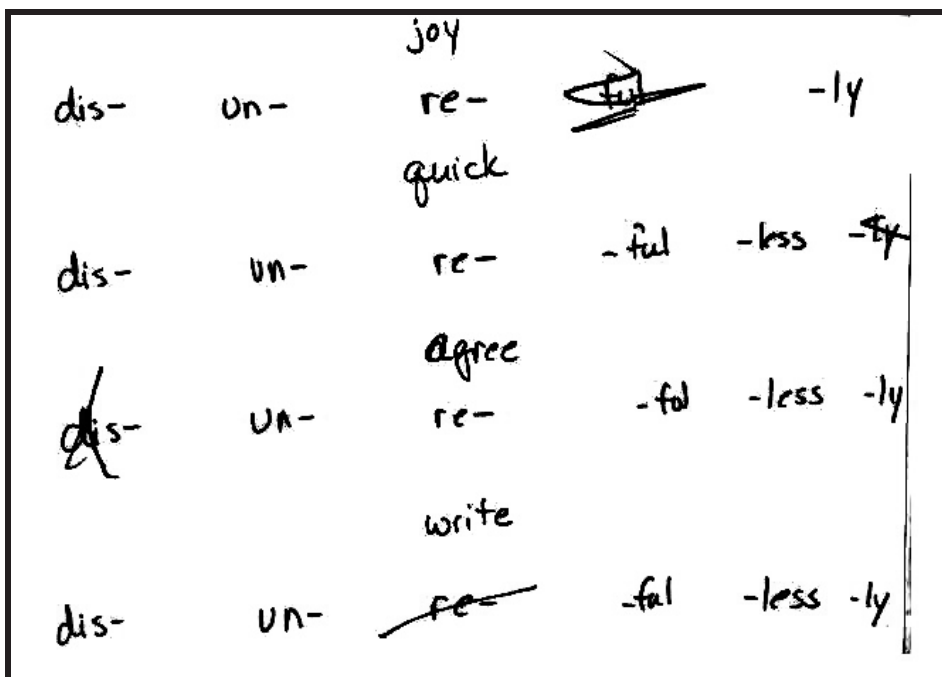 joy
dis- un- re- ful -ly
quick
dis- un- re- -ful -less -ly
agree
dis- un- re- -ful -less -ly
write
dis- un- re- -ful -less -ly